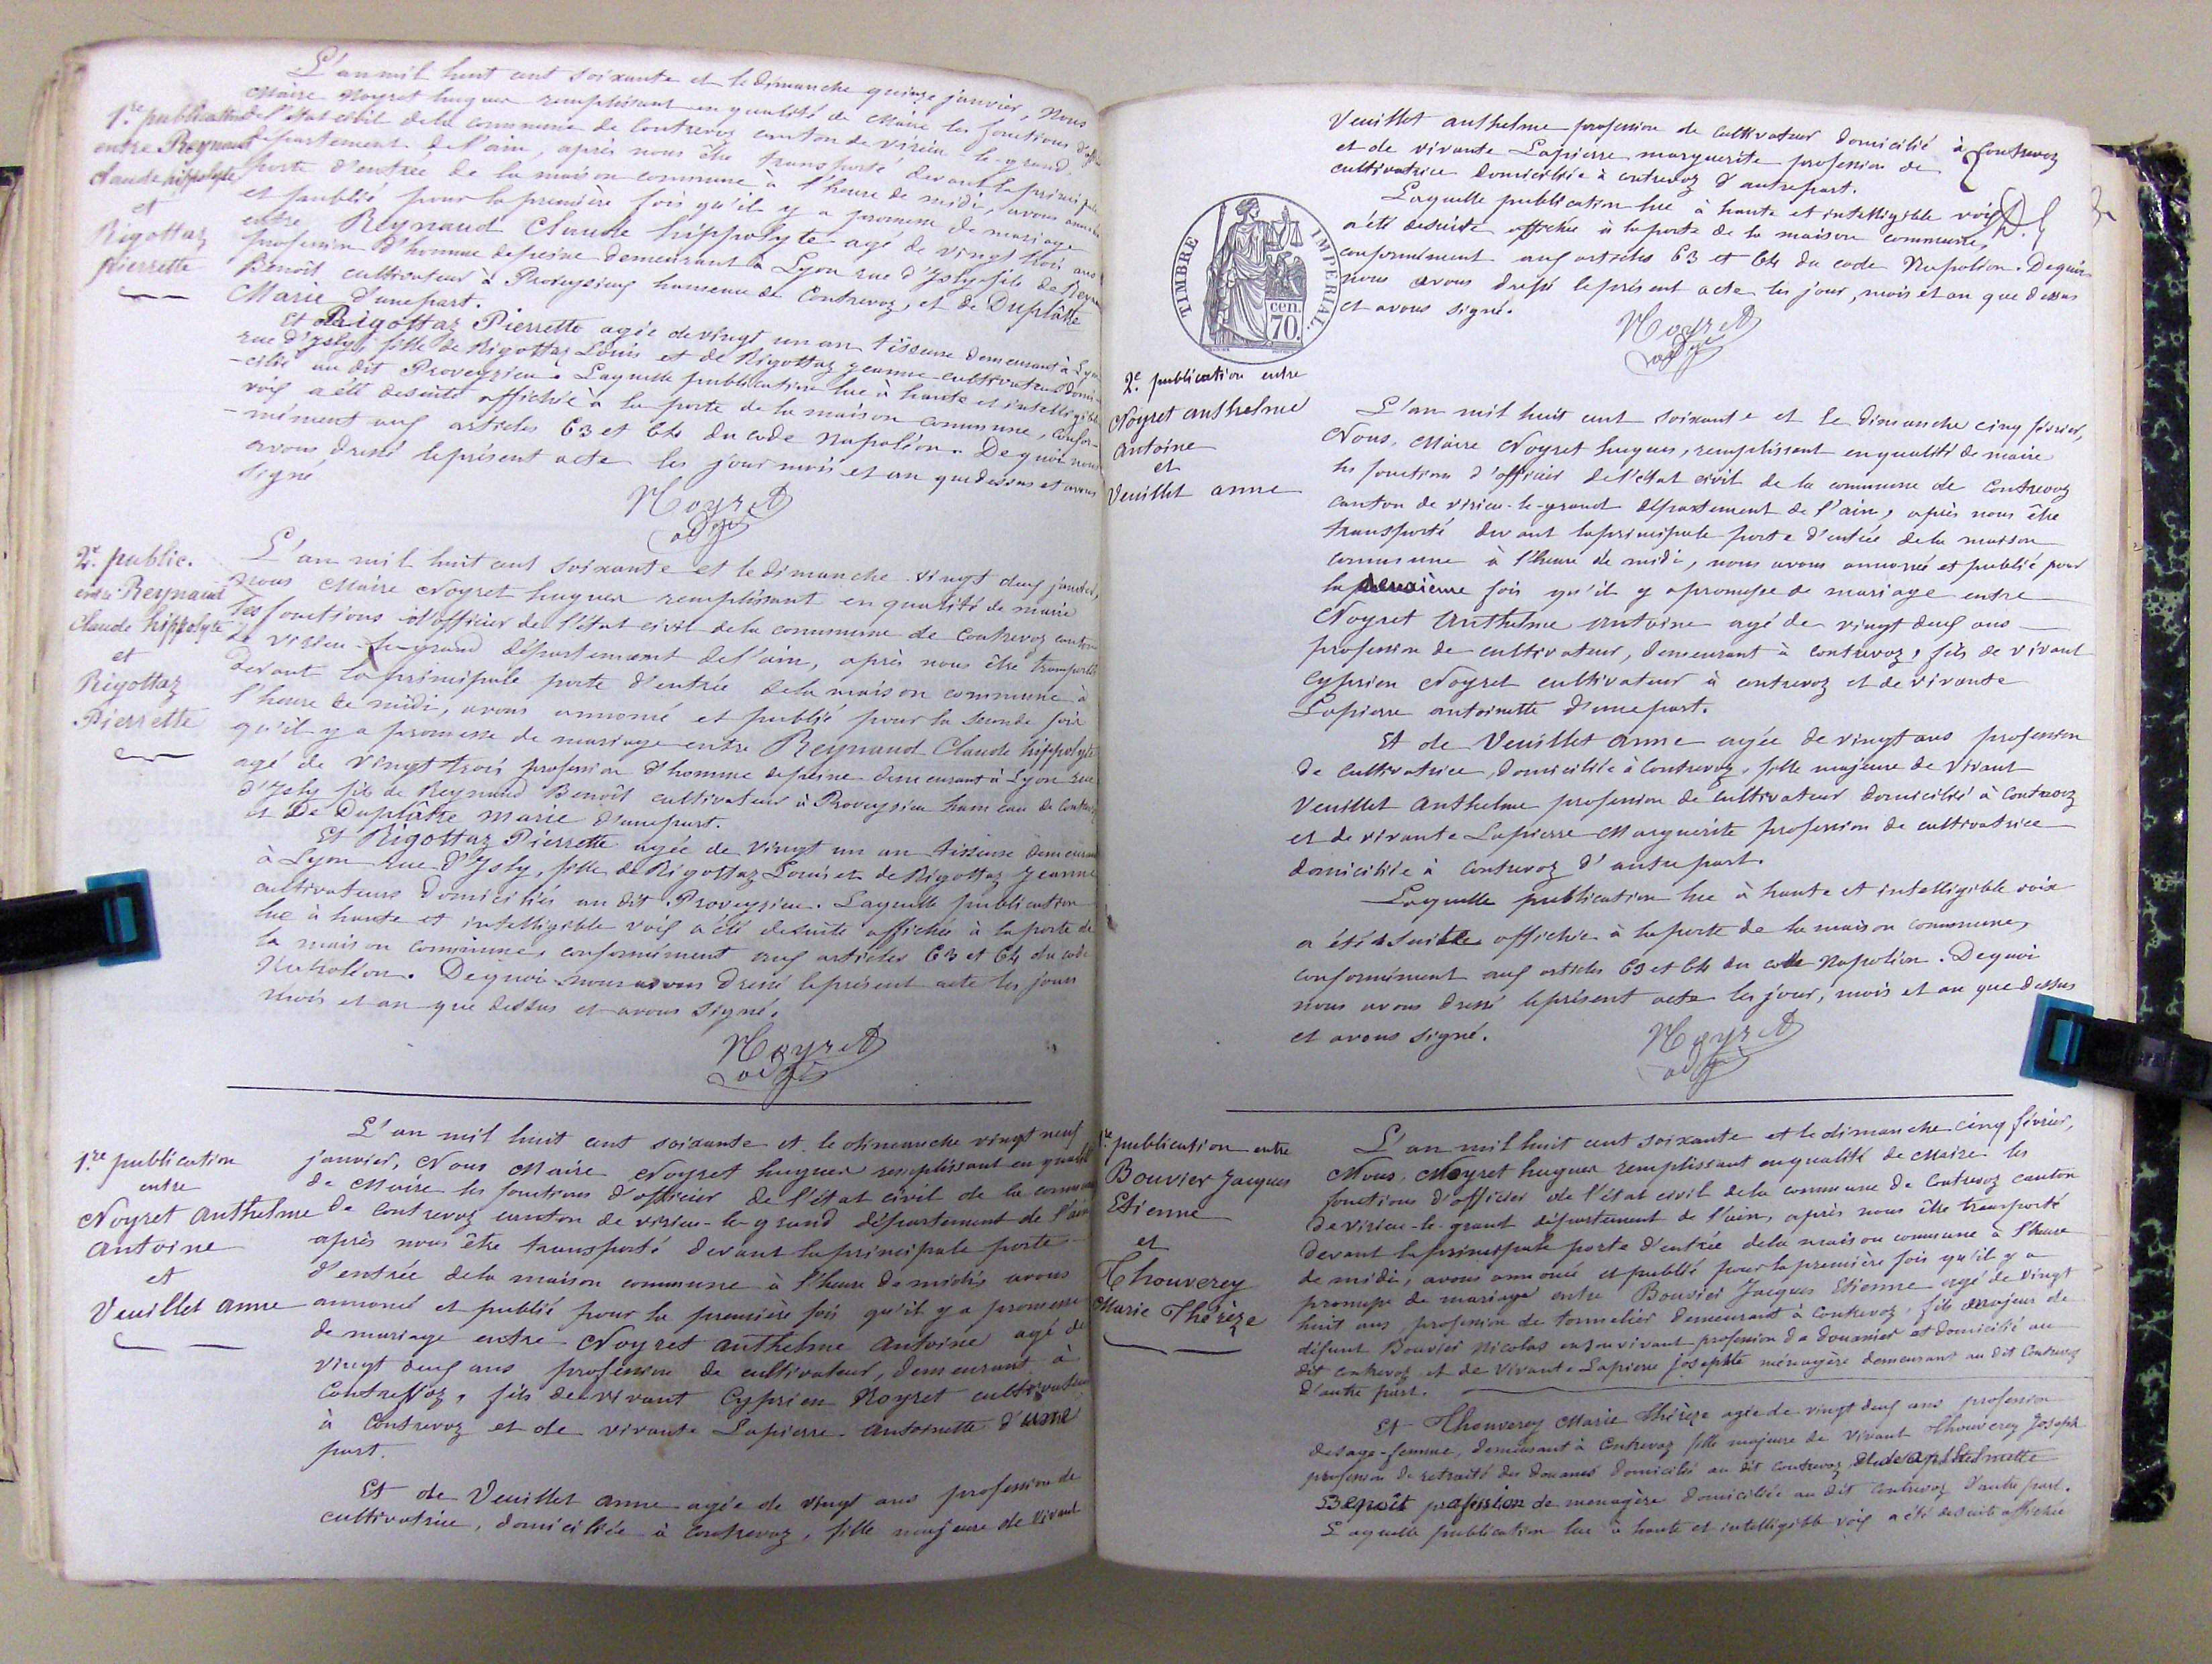 L'an mil huit cent soixante et le dimanche quinze janvier, Nous
Maire Noyret hugues remplissant en qualité de Maire les fonctions d'off
de l'état civil de la commune de Contrevoz canton de virieu-le-grand
département de l'ain, après nous être transporté devant la principale
porte d'entrée de la maison commune à l'heure de midi, avons annoncé
et publié pour la première fois qu'il y a promesse de mariage
entre Reynaud Claude hippolyte agé de vingt trois ans
profession d'homme de peine demeurant à Lyon rue d'Ysly fils de Reyn
Benoît cultivateur à Proveysieu hameau de Contrevoz, et de Duplâtre
Marie d'une part.
1re publication
entre Reynaud
Claude hippolyte
et
Rigottaz
pierrette
Et de Rigottaz Pierrette agée de vingt un an tisseuse demeurant à Lyon
rue d'Ysly, fille de Rigottaz Louis et de Rigottaz jeanne cultivateurs domi-
-ciliés au dit Proveyzieu. Laquelle publication lue à haute et intelligible
voix a été desuite affichée à la porte de la maison commune, confor-
-mément aux articles 63 et 64 du code Napoléon. De quoi nous
avons dressé le présent acte les jour mois et an que dessus et avons
signé
Noyret
2e public.
entre Reynaud
Claude hippolyte
et
Rigottaz
Pierrette
L'an mil huit cent soixante et le dimanche vingt deux janvier,
Nous Maire Noyret hugues remplissant en qualité de maire
les fonctions d'officier de l'état civil de la commune de Contrevoz canton
de virieu-le-grand département de l'ain, après nous être transporté
devant la principale porte d'entrée de la maison commune à
l'heure de midi, avons annoncé et publié pour la seconde fois
qu'il y a promesse de mariage entre Reynaud Claude hippolyte
agé de vingt trois profession d'homme de peine demeurant à Lyon rue
d'Ysly fils de Reynaud Benoît cultivateur à Proveysieu hameau de Contrevoz
et De Duplâtre marie d'une part.
Et Rigottaz Pierrette agée de vingt un an tisseuse demeurant
à Lyon rue d'Ysly, fille de Rigottaz Louis et de Rigottaz jeanne
cultivateurs domiciliés au dit Proveyzieu. Laquelle publication
lue à haute et intelligible voix a été desuite affichée à la porte de
la maison commune, conformément aux articles 63 et 64 du code
Napoléon. De quoi nous avons dressé le présent acte les jours
mois et an que dessus et avons signé.
Noyret
1re publication
entre
Noyret anthelme
antoine
et
Veuillet anne
L'an mil huit cent soixante et le dimanche vingt neuf
janvier, Nous Maire Noyret hugues remplissant en qualité
de Maire les fonctions d'officier de l'état civil de la commune
de Contrevoz canton de virieu-le-grand département de l'ain
après nous être transporté devant la principale porte
d'entrée de la maison commune à l'heure de midi, avons
annoncé et publié pour la première fois qu'il y a promesse
de mariage entre Noyret anthelme antoine agé de
vingt deux ans profession de cultivateur, demeurant à
Contrevoz, fils de vivant Cyprien Noyret cultivateur
à Contrevoz et de vivante Lapierre antoinette d'une
part.
Et de Veuillet anne agée de vingt ans profession de
cultivatrice, domiciliée à Contrevoz, fille majeure de vivant
Veuillet anthelme profession de cultivateur domicilié à Contrevoz
et de vivante Lapierre marguerite profession de
cultivatrice domiciliée à contrevoz d'autre part.
Laquelle publication lue à haute et intelligible voix
a été desuite affichée à la porte de la maison commune,
conformément aux articles 63 et 64 du code Napoléon. De quoi
nous avons dressé le présent acte les jour, mois et an que dessus
et avons signé.
TIMBRE IMPERIAL.
cen.
70.
Noyret
2e publication entre
Noyret anthelme
antoine
et
Veuillet anne
L'an mil huit cent soixante et le dimanche cinq février,
Nous, Maire Noyret hugues, remplissant en qualité de maire
les fonctions d'officier de l'état civil de la commune de Contrevoz
canton de virieu-le-grand département de l'ain, après nous être
transporté devant la principale porte d'entrée de la maison
commune à l'heure de midi, nous avons annoncé et publié pour
la deuxième fois qu'il y a promesse de mariage entre
Noyret Anthelme Antoine agé de vingt deux ans
profession de cultivateur, demeurant à contrevoz, fils de vivant
Cyprien Noyret cultivateur à contrevoz et de vivante
Lapierre antoinette d'une part.
Et de Veuillet anne agée de vingt ans profession
de cultivatrice, domiciliée à Contrevoz, fille majeure de vivant
Veuillet Anthelme profession de cultivateur domicilié à Contrevoz
et de vivante Lapierre Marguerite profession de cultivatrice
domiciliée à Contrevoz d'autre part.
Laquelle publication lue à haute et intelligible voix
a été desuite affichée à la porte de la maison commune,
conformément aux articles 63 et 64 du code Napoléon. De quoi
nous avons dressé le présent acte les jour, mois et an que dessus
et avons signé.
Noyret
1re publication entre
Bouvier Jacques
Etienne
et
Thouverey
Marie Thérèze
L'an mil huit cent soixante et le dimanche cinq février,
Nous, Noyret hugues remplissant en qualité de Maire les
fonctions d'officier de l'état civil de la commune de Contrevoz canton
de virieu-le-grant département de l'ain, après nous être transporté
devant la principale porte d'entrée de la maison commune à l'heure
de midi, avons annoncé et publié pour la première fois qu'il y a
promesse de mariage entre Bouvier Jacques Etienne agé de vingt
huit ans, profession de tonnelier demeurant à Contrevoz, fils majeur de
défunt Bouvier Nicolas en son vivant profession de douanier et domicilié au
dit contrevoz et de vivante Lapierre Josephte ménagère demeurant au dit Contrevoz
d'autre part.
Et Thouverey Marie Thérèze agée de vingt deux ans profession
de sage-femme, demeurant à Contrevoz fille majeure de vivant Thouverey Joseph
profession de retraité des douanes domicilié au dit Contrevoz
Benoît profession de menagère domiciliée au dit Contrevoz d'autre part.
Laquelle publication lue à haute et intelligible voix a été desuite affichée